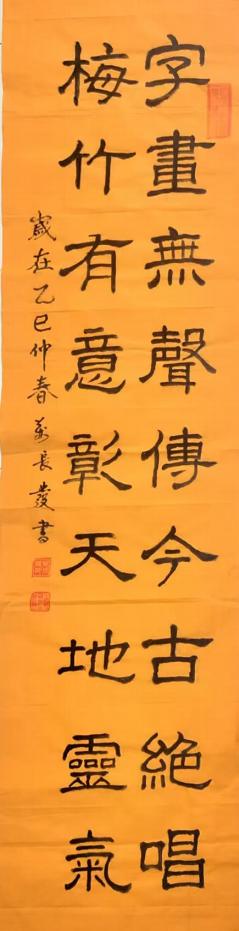 字畫無聲傳今古絕唱
梅竹有意彰天地靈氣
歲在乙巳仲春萬長發書